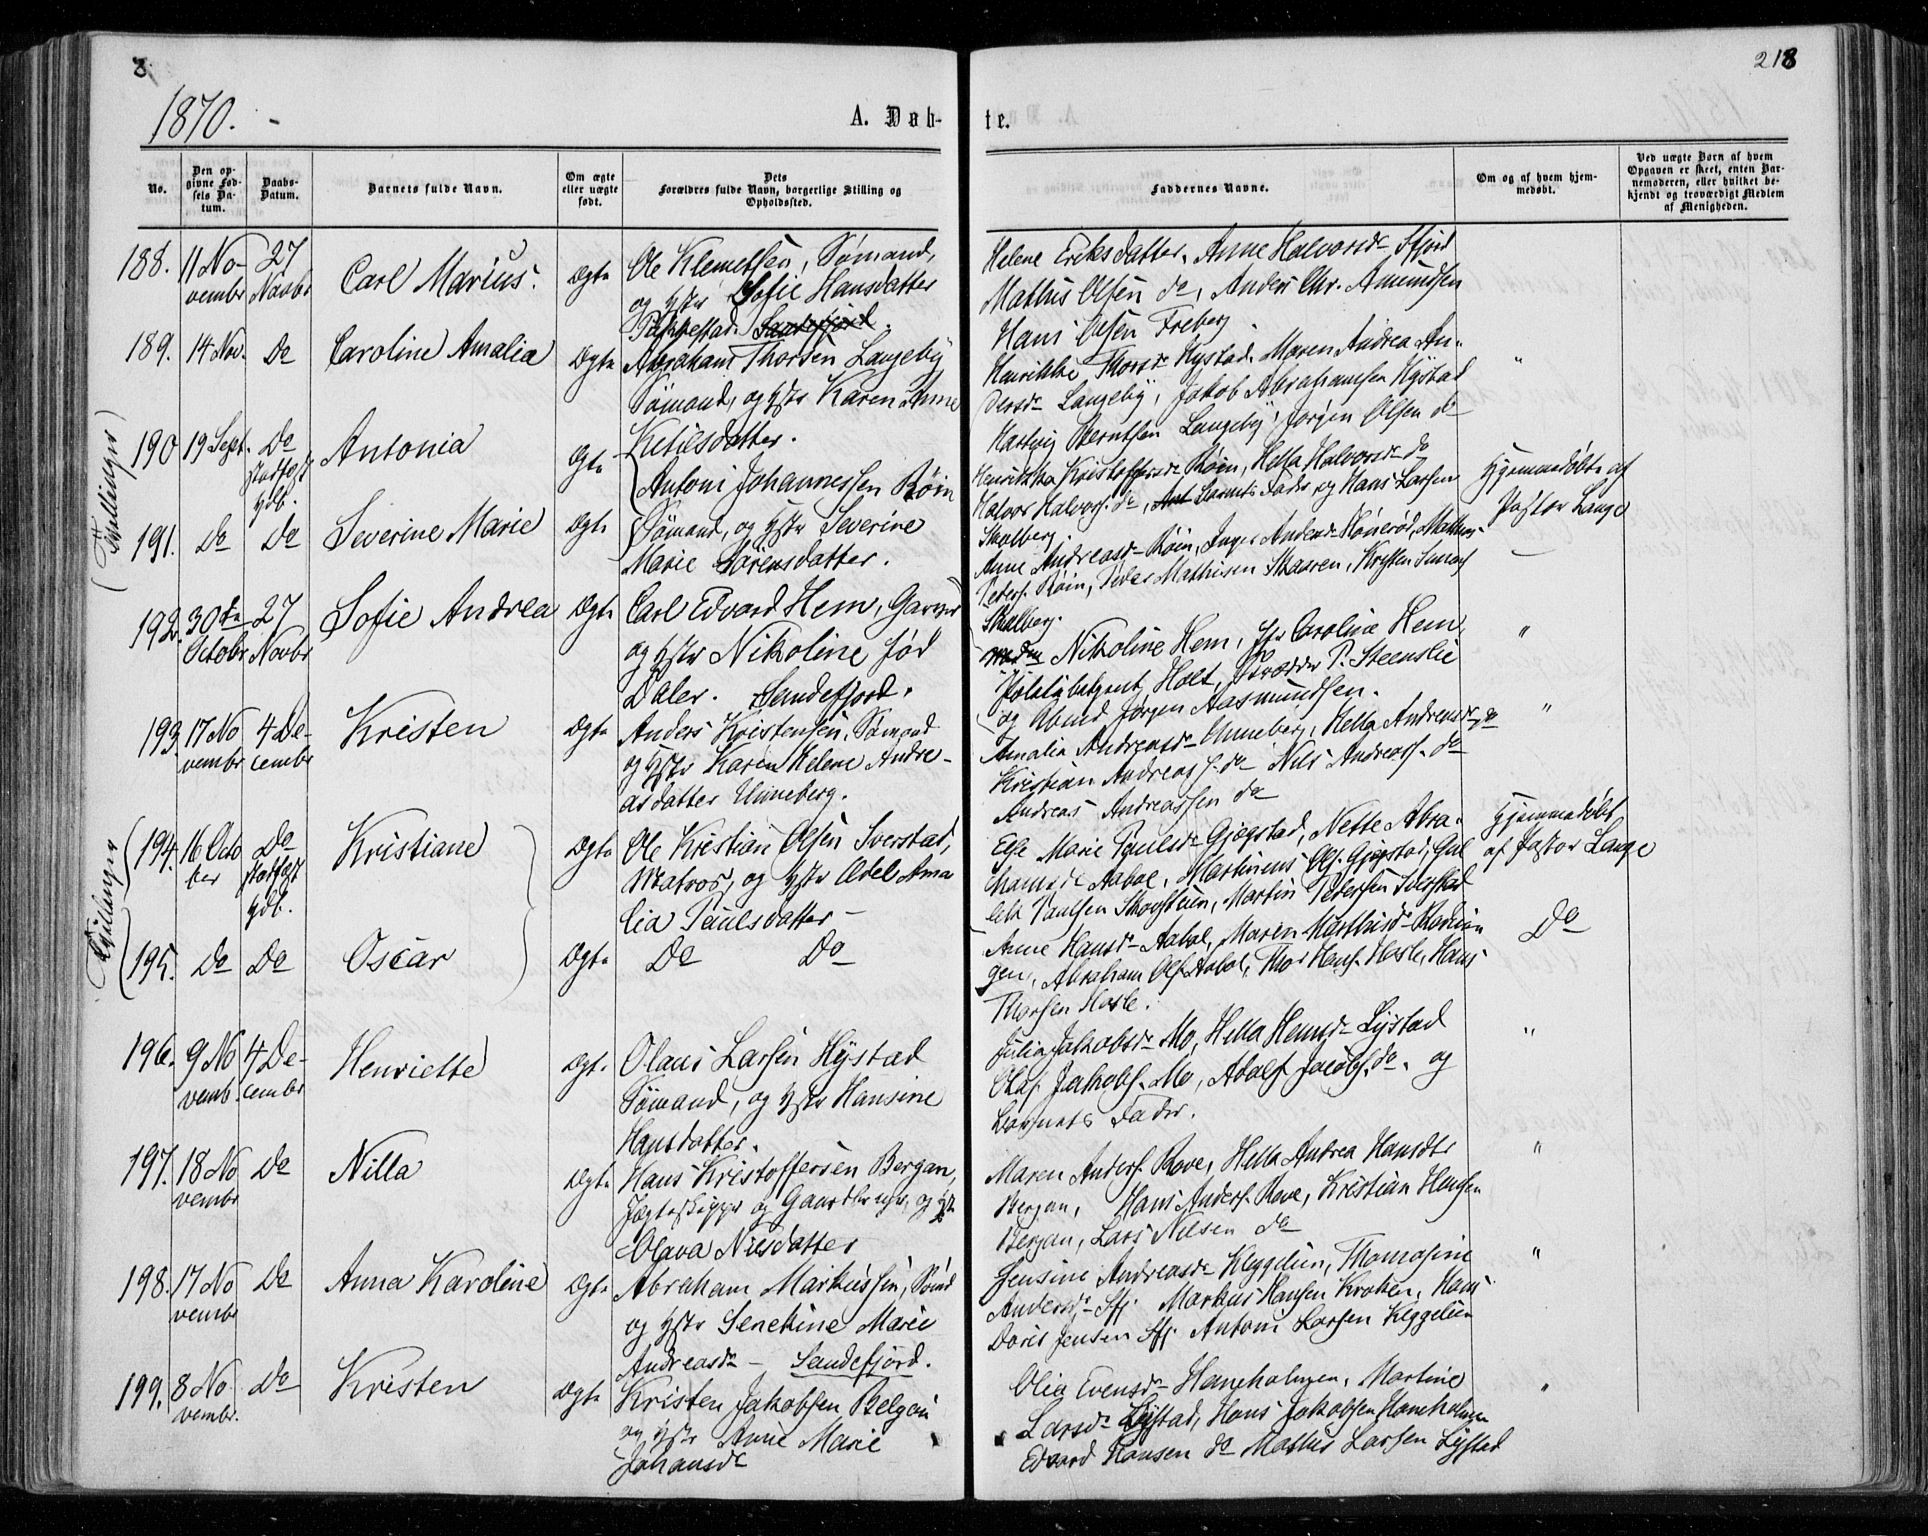 8
218
1870. -
A. Døb-
te.
No.
Den op-
givne Fød-
sels Da-
tum.
Daabs-
Datum.
Barnets fulde Navn.
Om ægte
eller uægte
født.
Dets
Forældres fulde Navn, borgerlige Stilling og
Opholdssted.
Faddernes Navne.
Om og af hvem hjem-
medøbt.
Ved uægte Børn af hvem
Opgaven er skeet, enten Bar-
nemoderen, eller hvilket be-
kjendt og troværdigt Medlem
af Menigheden.
188.
11 No-
vembr
27
Novbr
Carl Marius.
Ægte
Ole Klemetsen, Sømand,
og Hstr Sofie Hansdatter
Sandefjord.
Helene Eriksdatter, Anne Halvorsdr Sfjord
Mathis Olsen do, Anders Chr. Amundsen
Hans Olsen Freberg
189.
14 Nov.
Do
Caroline Amalia
Ægte
Abraham Thorsen Langeby
Sømand, og Hstr Karen Anne
Ketilsdatter.
Henrikke Thorsdr Hystad, Maren Andrea An-
dersdr Langeby, Jakob Abrahamsen Hystad
Hartvig Berntsen Langeby Jørgen Olsen do
"
(Tvillinger)
190
19 Sept.
Do
stadfæst
hdb.
Antonia
Ægte
Antoni Johannessen Røin
Henrikka Kristoffersdr Røin, Hella Halvorsdr do
Halvor Halvors. do, Barnets Fader og Hans Larsen
Skalberg.
Hjemmedøbt af
Pastor Lange
191.
Do
Do
Severine Marie
Ægte
Sømand, og Hstr Severine
Marie Sørensdatter.
Anne Andreasdr Røin, Inger Andersdr
Peders. Røin, Peder Mathisen Skaaren, Kristen
Skalberg.
—
192.
30de
Octobr
27
Novbr
Sofie Andrea
Ægte
Carl Edvard Hem, Garver
og Hstr Nikoline fød
Daler. Sandefjord.
Nikoline Hem, Caroline Hem,
Politibetjent Holt, Skrædder P. Steenslie
og Jørgen Aasmundsen.
"
193.
17 No
vembr
4 De-
cembr
Kristen
Ægte
Anders Kristensen, Sømand
og Hstr Karen Helene Andre-
asdatter Unneberg.
Amalia Andreasdr Unneberg, Hella Andreasdr do
Kristian Andreass. do Nils Andreass. do
Andreas Andreassen do
"
(Tvillinger)
194.
16 Octo
ber
Do
stadfæst
hdb.
Kristiane
Ægte
Ole Kristian Olsen Sverstad,
Matros, og Hstr Edel Ama
lia Paulsdatter -
Else Marie Paulsdr Gjøgstad, Nette Abra-
hamsdr Aabol, Martinius Ols. Gjøgstad,
Paulsen, Martin Pedersen Sverstad
Hjemmedøbt
af Pastor Lange
195.
Do
Do
Oscar
Ægte
Do Do
Anne Hansdr Aabol, Maren Mathisdr
gen, Abraham Ols. Aabol, Thor Hans. Hasle, Hans
Thorsen Hasle.
Do
196.
9 No
vembr
4 De-
cembr
Henriette
Ægt.
Olaus Larsen Hystad
Sømand, og Hstr Hansine
Hansdatter.
Julia Jakobsdr Mo, Hella Hansdr Lystad
Olaf Jakobs. Mo, Adolf Jacobs. do. og
Barnets Fader.
"
197.
18 No
vembr
Do
Nilla
Ægte
Hans Kristoffersen Bergan,
Jægteskipper og Gaardbruger, og Hstr
Olava Nilsdatter
Maren Anders. Rove, Hella Andrea Hansdtr
Bergan, Hans Anders. Rove, Kristian Hansen
Bergan, Lars Nilsen do
"
198.
17 No
vembr
Do
Anna Karoline
Ægte
Abraham Markussen, Sømd
og Hstr Senekine Marie
Andreasdr - Sandefjord.
Jensine Andreasdr Keggelien, Thomasine
Andersdr - Sfj. Markus Hansen Kroken, Hans
Doris Jensen Sfj. Antoni Larsen Keggelien
"
199.
8 No
vembr.
Do
Kristen
Ægte
Kristen Jakobsen Belgau
og Hstr Anne Marie
Johansdr
Olia Evensdr Haneholmen, Martine
Larsdr Lystad, Hans Jakobsen Haneholmen
Edvard Hansen do Mathis Larsen Lystad
"